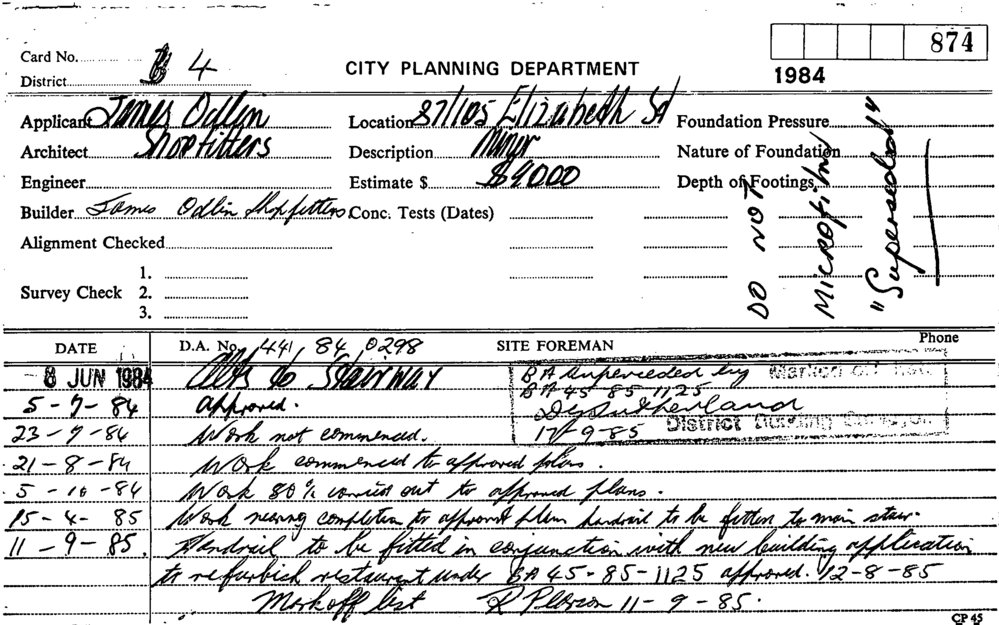 874
Card No. B 4
CITY PLANNING DEPARTMENT
1984
District
Applicant James Odlin
Location 87/105 Elizabeth St
Foundation Pressure
Architect Shopfitters
Description Minor
Nature of Foundation
Engineer
Estimate $ $9000
Depth of Footings
Builder James Odlin Shopfitters
Conc. Tests (Dates)
Alignment Checked
DO NOT
Microfilm
"Superseded"
1.
Survey Check 2.
3.
DATE
D.A. No. 441, 84, 0298
SITE FOREMAN
Phone
8 JUN 1984 Alts to Stairway
BA Superceded by
BA 45 85 1125
5-7-84 Approved.
D Sutherland
17-9-85 District Building Surveyor
23-7-84 Work not commenced.
21-8-84 Work commenced to approved plans.
5-10-84 Work 80% carried out to approved plans.
15-4-85 Work nearing completion to approved plan handrail to be fitted to main stair.
11-9-85. Handrail to be fitted in conjunction with new building application
to refurbish restaurant under BA 45-85-1125 approved. 12-8-85
Mark off list R Pearson 11-9-85.
CP 45